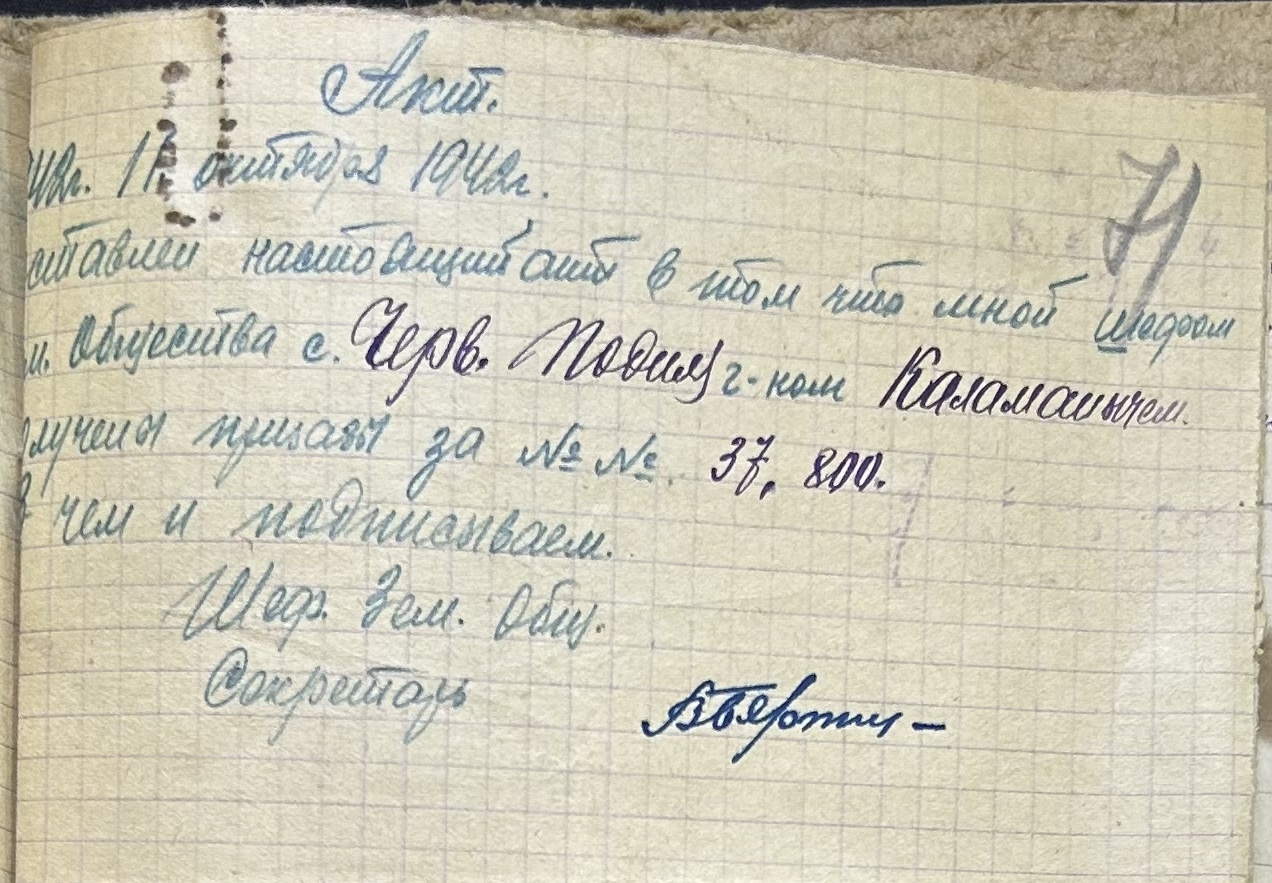 Акт.
42г. 17 октября 1942г.
ставлен настоящий акт в том что мной шефом
м. Общества с. Черв. Подил г-ном Каламанычем.
лучены приказы за №№. 37, 800.
В чем и подписываем.
Шеф. Зем. Общ.
Секретарь
71